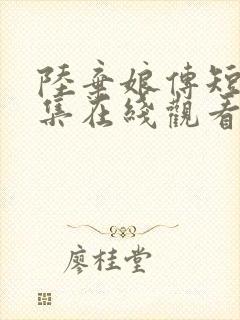 陸棄娘傳短
集在綫觀看
廖桂堂